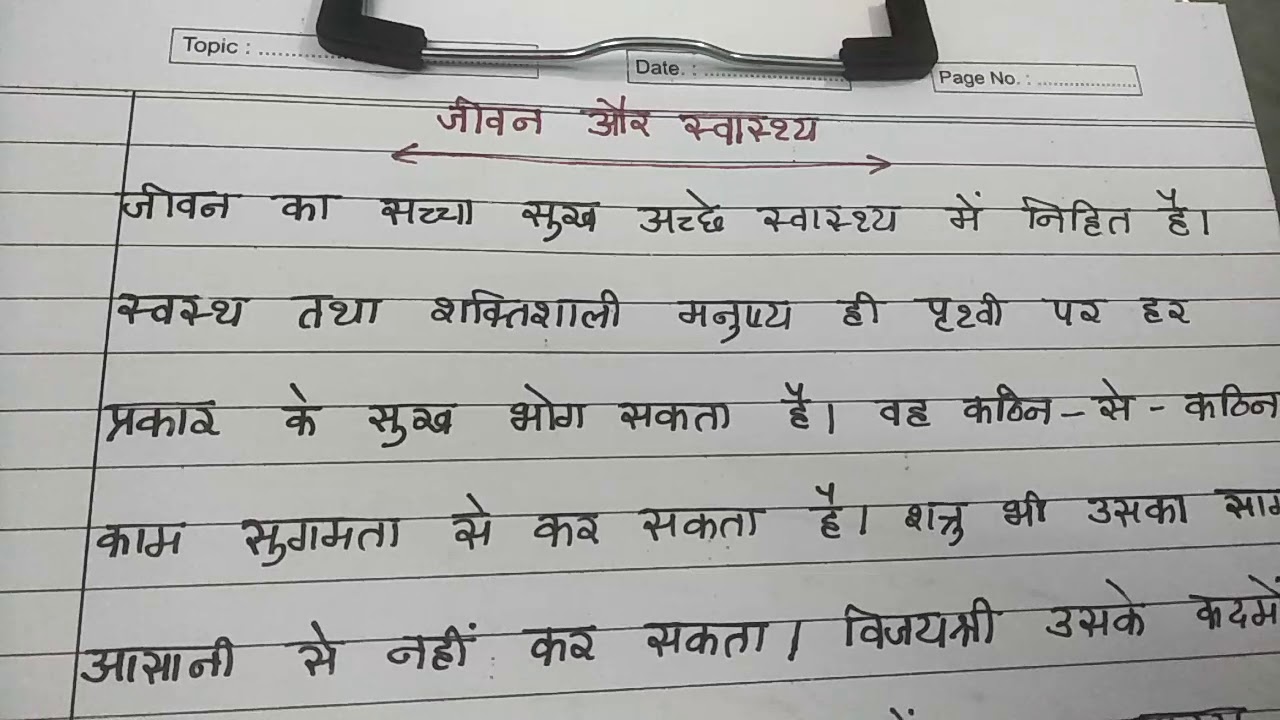 Topic :
Date. :
Page No. :
जीवन और स्वास्थ्य
जीवन का सच्चा सुख अच्छे स्वास्थ्य में निहित है।
स्वस्थ तथा शक्तिशाली मनुष्य ही पृथ्वी पर हर
प्रकार के सुख भोग सकता है। वह कठिन - से - कठिन
काम सुगमता से कर सकता है। शत्रु भी उसका
आसानी से नहीं कर सकता। विजयश्री उसके